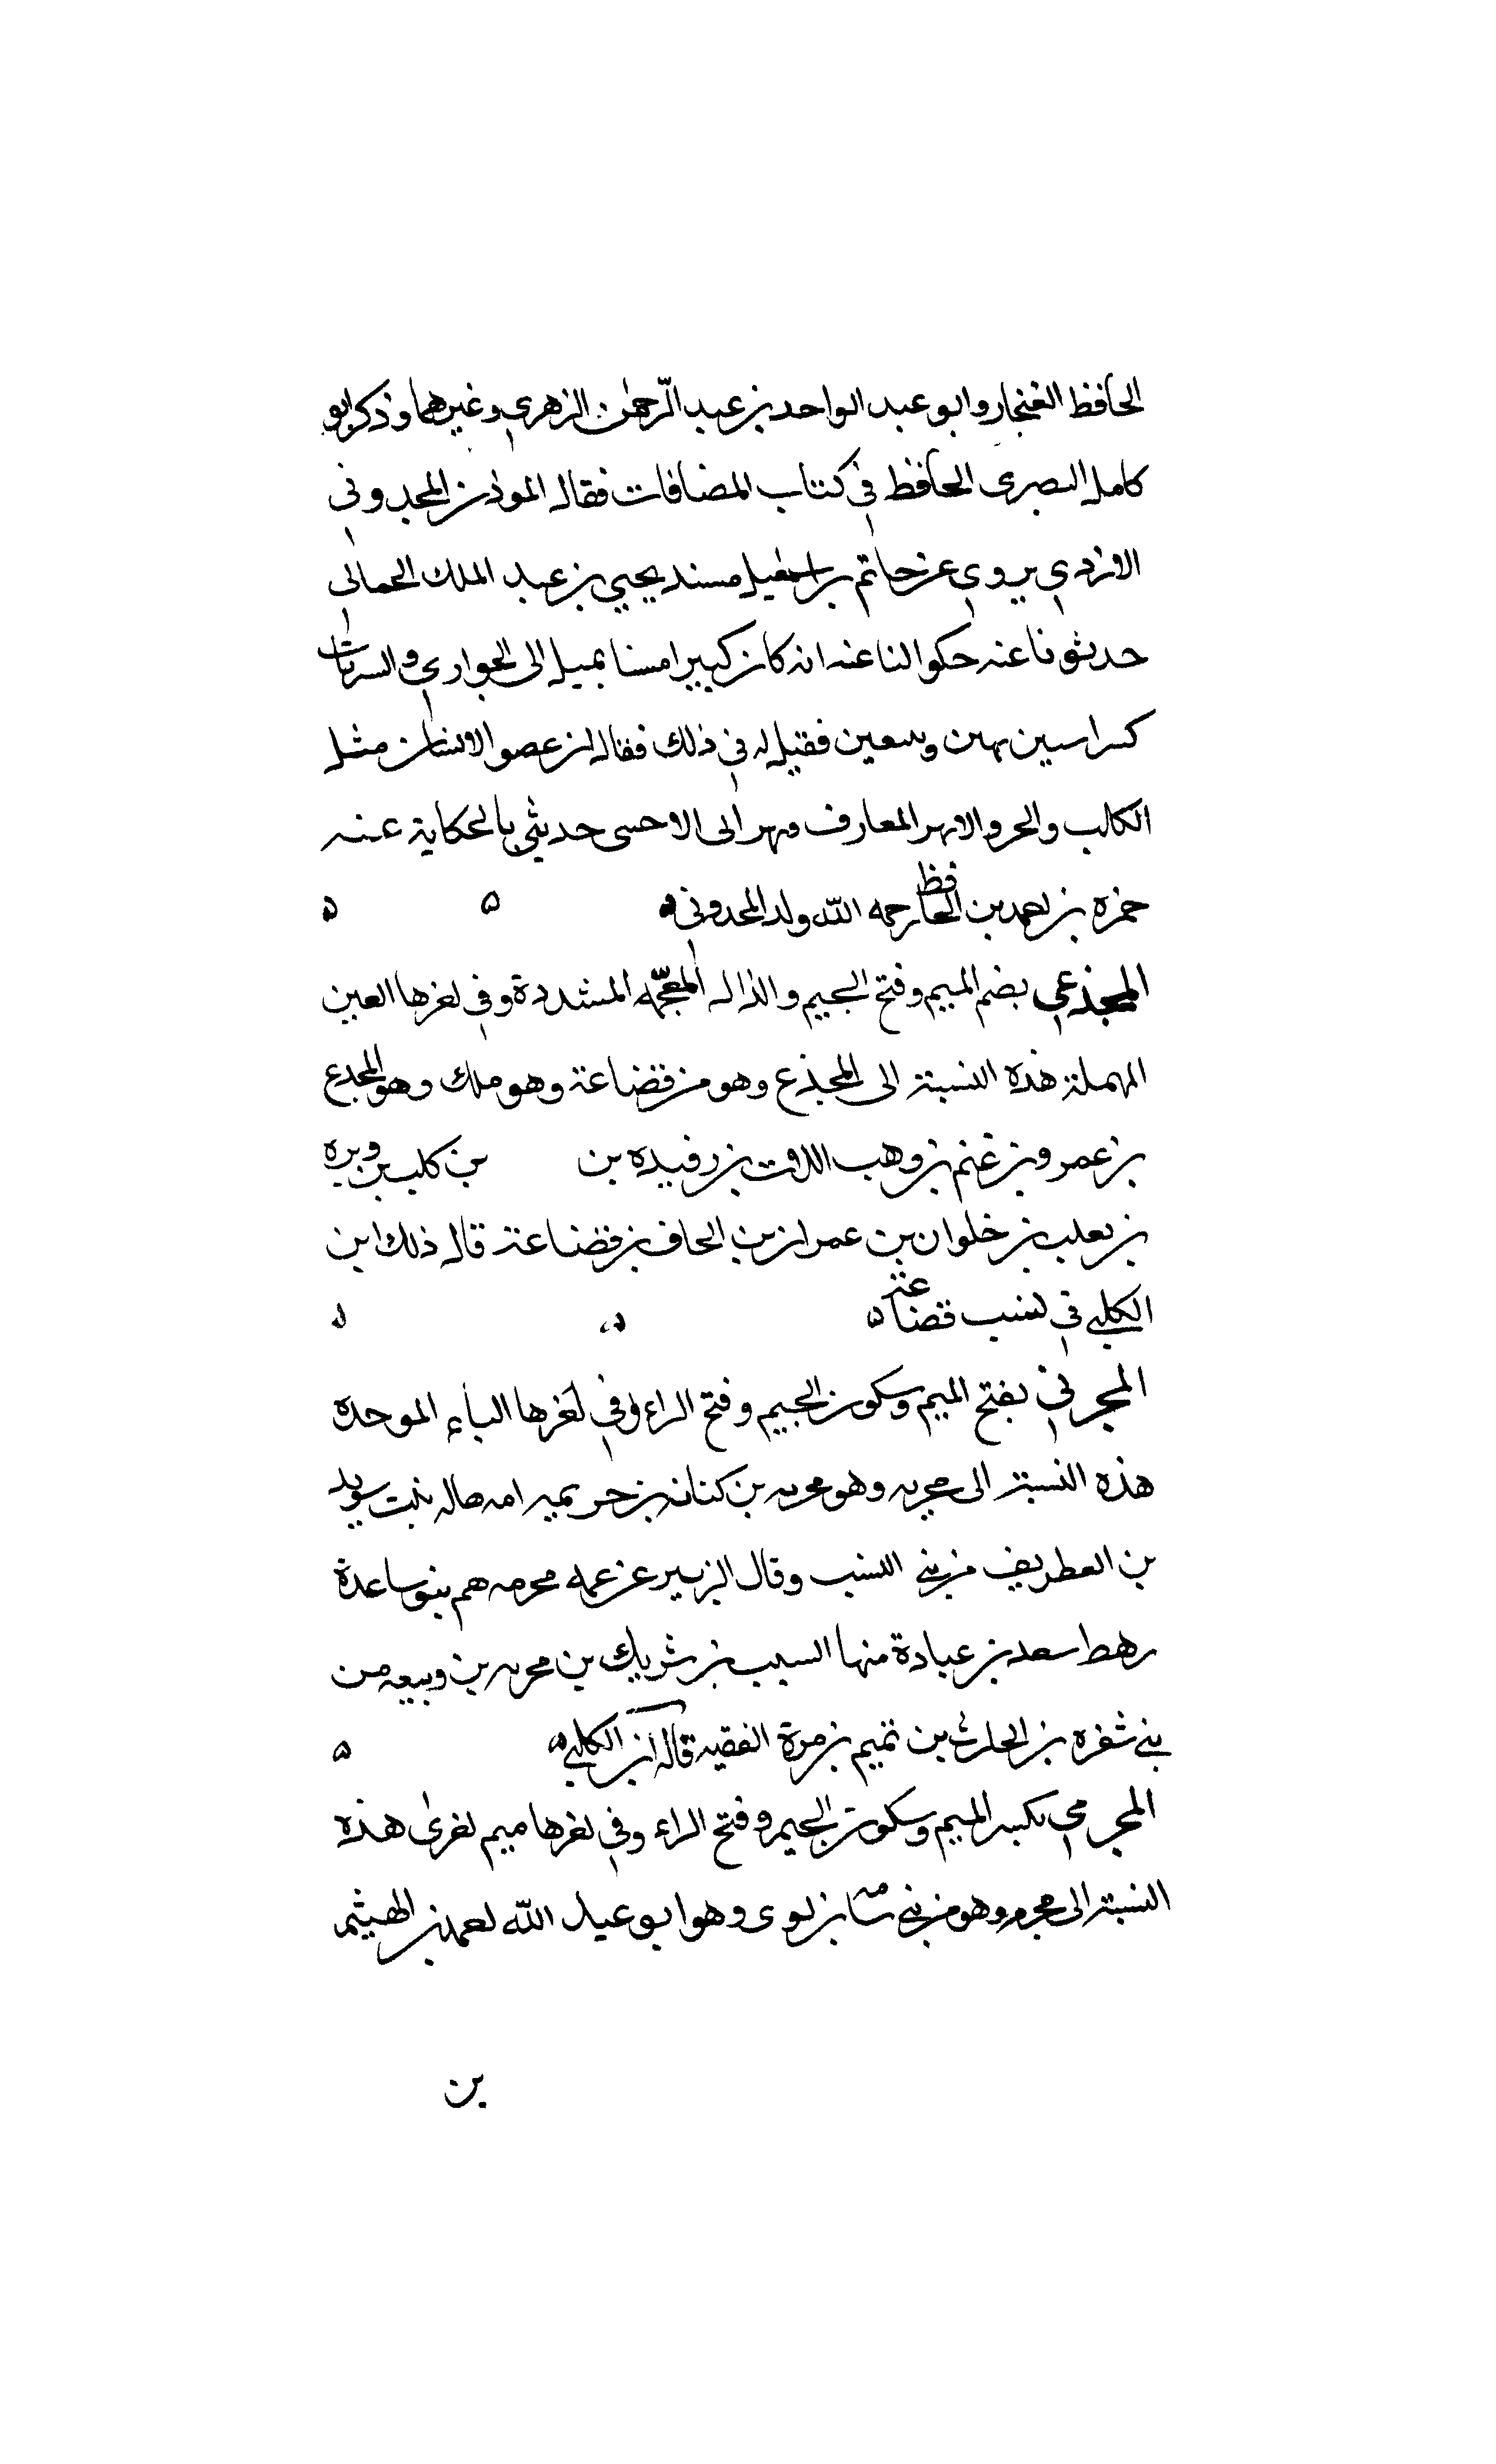 الحافظ الغنجار وابو عبد الواحد بن عبد الرّحمٰن الزهري وغيرهما وذكر ابو
كامل البصرى الحافظ في كتاب المضافات فقال الموذن المجدوني
الازدي يروي عن حاتم بن اسمعيل مسند يحيي بن عبد الملك الحمالى
حديثونا عنه حكوا لنا عنه انه كان كبيرا مسنا يميل الى الجواري والسريات
كسرا سين فقيل له في ذلك فقال ان عصو الانسان مثل
الكالب والحر والابهر المعارف الى الاحسى حديثي بالحكاية عنه
حمزه بن احمد بن الحافظ رحمه الله ولد المجدوني ه ه ه
المجذعي بضم الميم وفتح الجيم والذال المعجمه المشددة وفي اخرها العين
المهملة هذه النسبة الى المجذع وهو من قضاعة وهو ملك وهو المجدع
بن عمرو بن غنم بن وهب اللات بن رفيده بن بن كلب بن وبره
بن بعلب بن خلوان بن عمران بن الحاف بن قضاعة قال ذلك ابن
الكلبي في نسب قضاعة ه ه ه
المجرني بفتح الميم وسكون الجيم وفتح الراء وفي اخرها الباء الموحدة
هذه النسبة الى مجربه وهو مجربه بن كنانه بن خريمه امه هاله بنت سويد
بن العطريف من بني النسب وقال الزبير عن عمه محرمه هم بنو ساعدة
رهط سعد بن عبادة منها السبب بن شريك بن مجربه بن وبيعه من
بني شفره بن الحارث بن تميم بن مرة الفقيه قاله ابن الكلبي ه ه
المجرمي بكسر الميم وسكون الجيم وفتح الراء وفي اخرها ميم اخرى هذه
النسبة الى مجرم وهو من بني سامه بن لوى وهو ابو عبد الله احمد بن الهيثم
بن